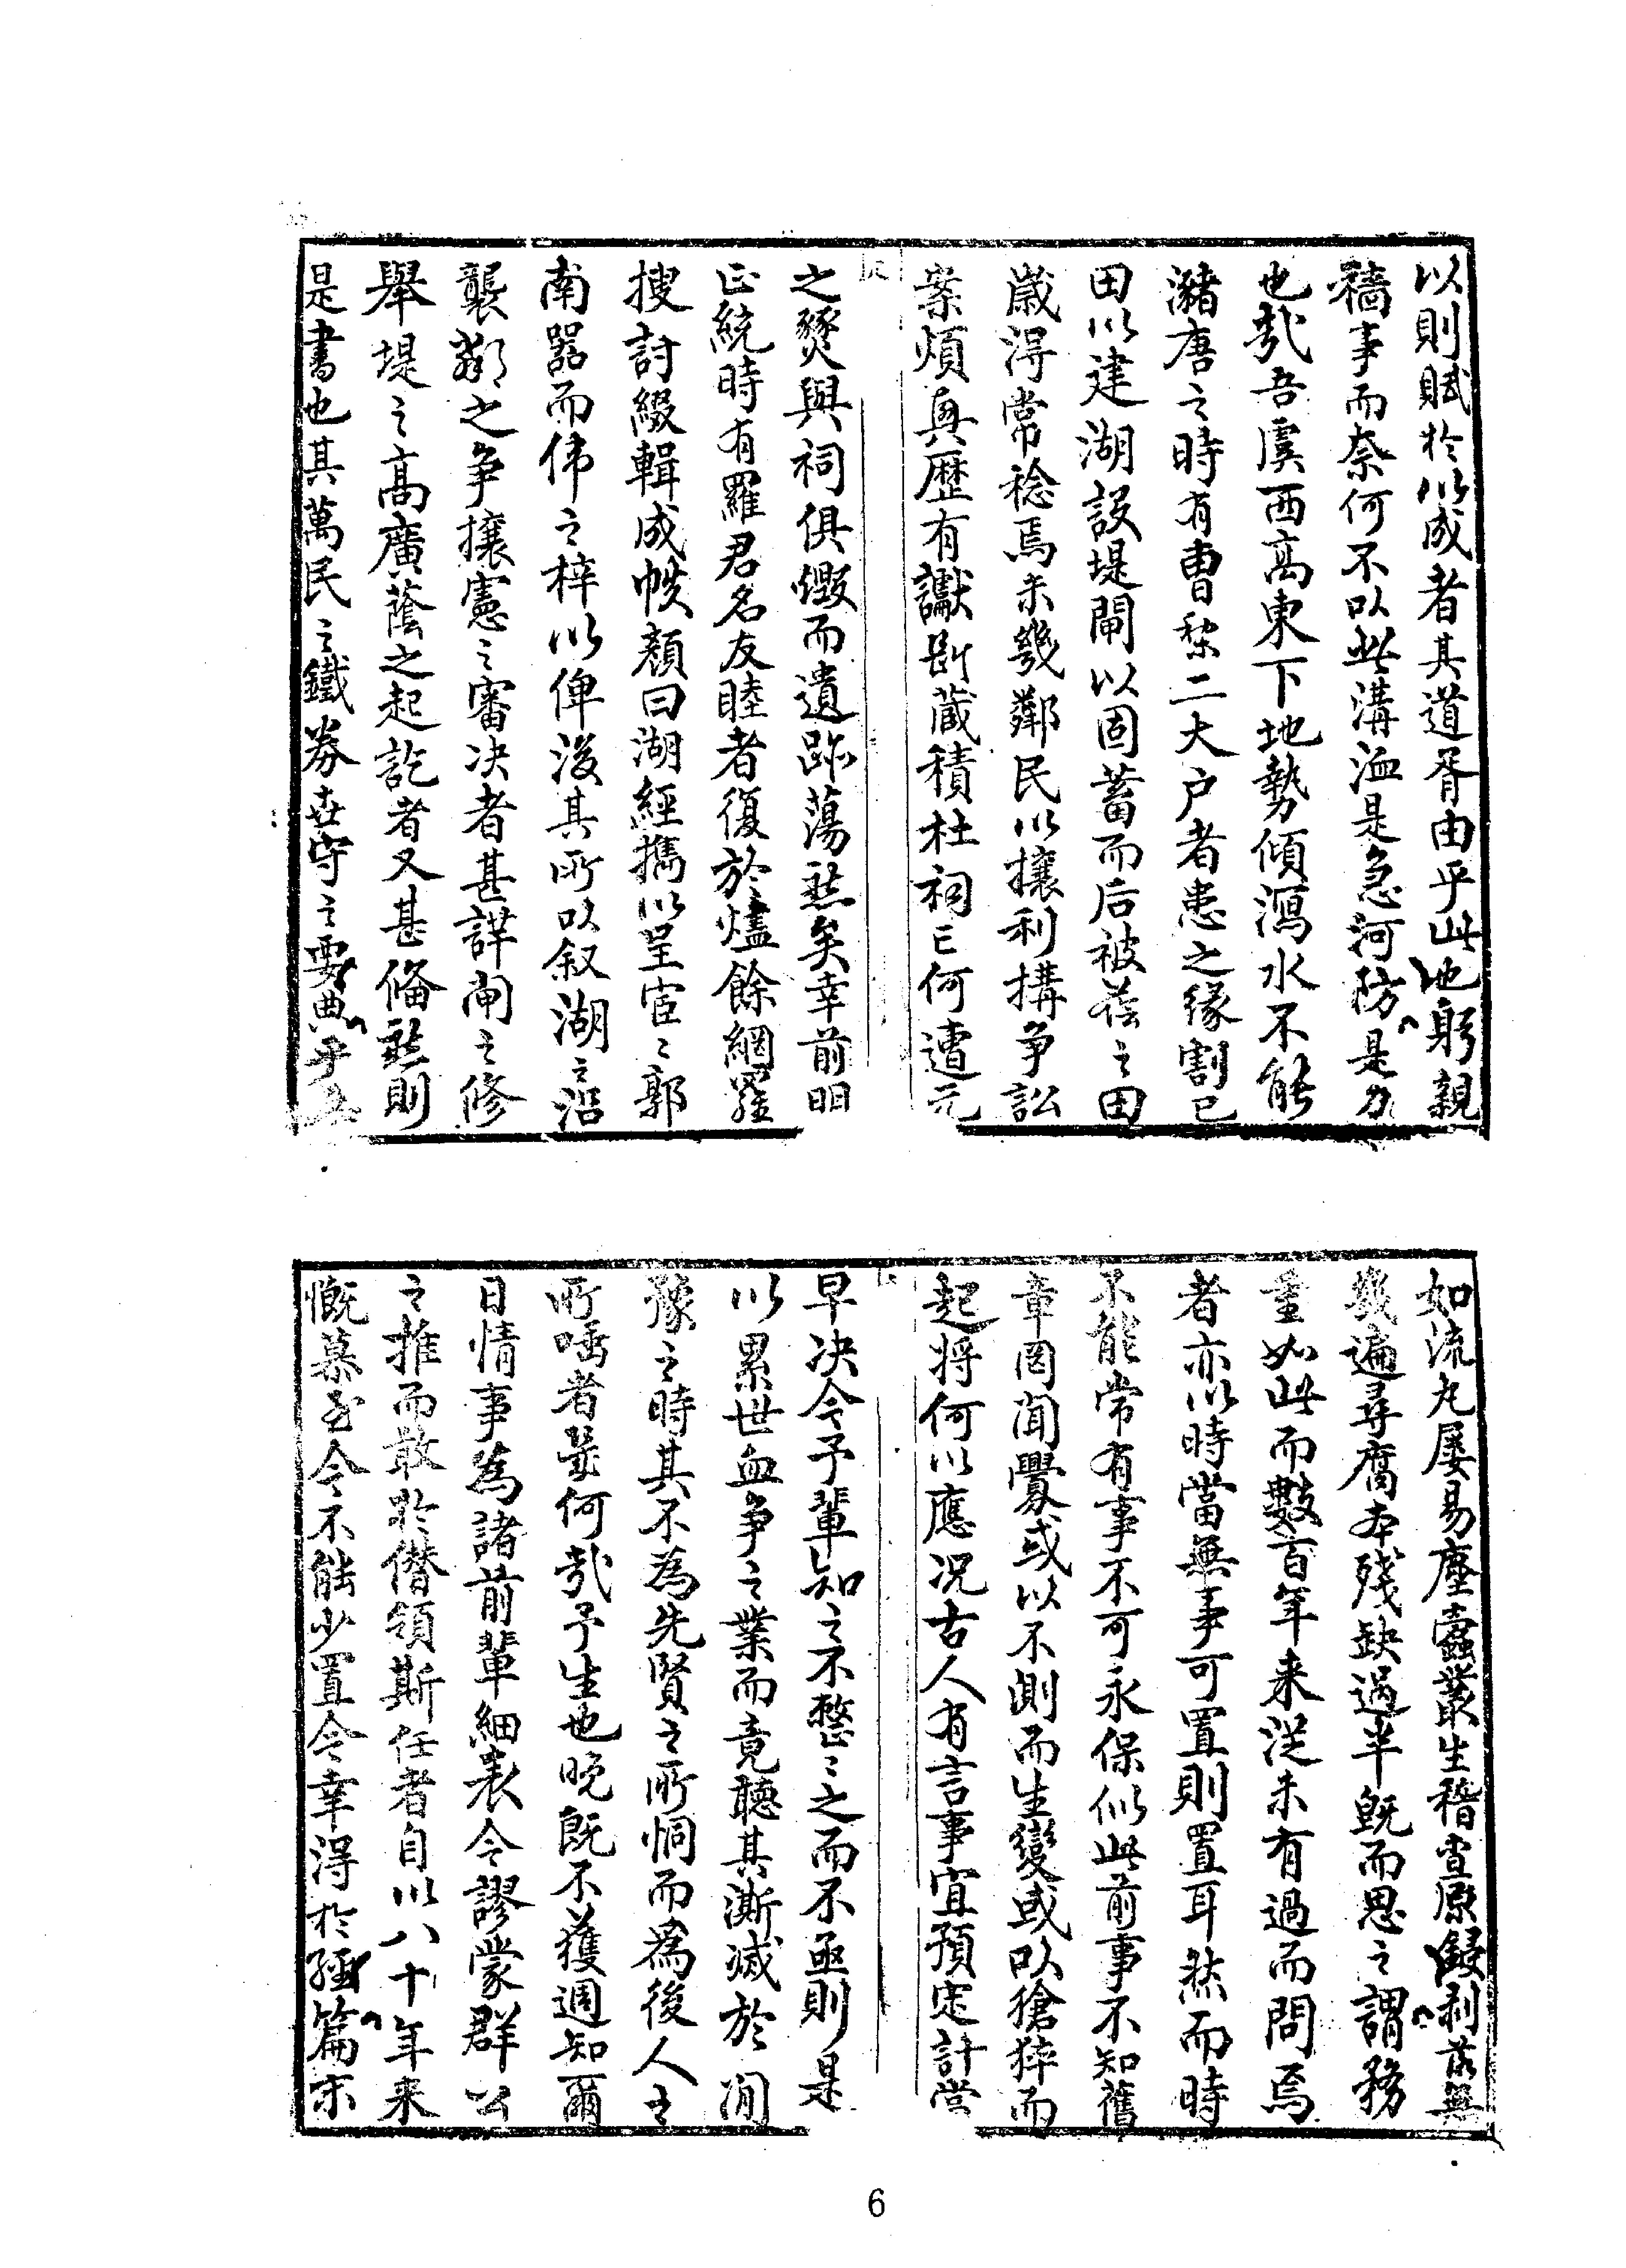 以則賦於以成者其道胥由乎此也躬親
穡事而奈何不以此溝洫是急河防是力
也哉吾虞西高東下地勢傾瀉水不能
瀦唐之時有曹黎二大户者患之緣割已
田以建湖設堤閘以固蓄而后被蔭之田
歲得常稔焉未幾鄰民以攘利搆争訟
案煩興歴有讞斷蔵積杜祠亡何遭元
之燹與祠俱燬而遺跡蕩然矣幸前明
正統時有羅君名友睦者復於燼餘網羅
搜討綴輯成帙顏曰湖經攜以呈宦〻郭
南器而偉之梓以俾後其所以叙湖之沿
襲鄰之争攘憲之審决者甚詳閘之修
舉堤之高廣蔭之起訖者又甚備然則
是書也其萬民之鐵券世守之要典乎
如流丸屡易塵蠧叢生稽查原鋟剥落無
幾遍尋腐本殘缺過半既而思之謂務
重如此而數百年来從未有過而問焉
者亦以時當無事可置則置耳然而時
不能常有事不可永保似此前事不知舊
章罔聞釁或以不測而生變或以猝而
起将何以應况古人有言事宜預定計當
早决今予輩知之不整〻之而不亟則是
以累世血争之業而竟聽其澌滅於閒
豫之時其不為先賢之所恫而為後人之
所唾者㡬何哉予生也晚既不獲週知爾
日情事為諸前輩細表令謬蒙群公
之推而敢於僭領斯任者自以八十年来
慨慕至今不能少置今幸得於經篇末
6